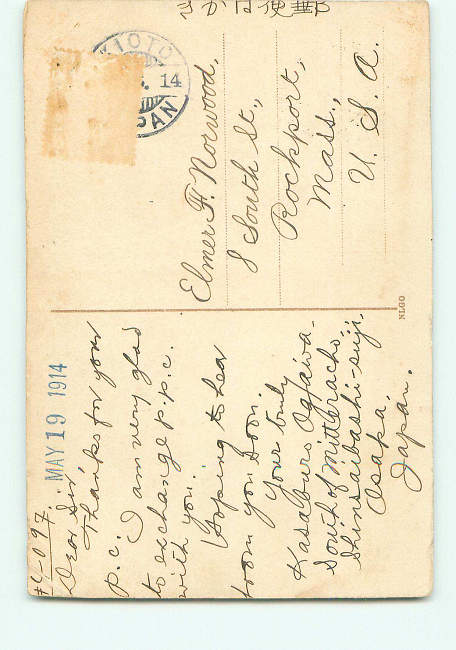 きがは便郵
KIOTO
14
JAPAN
Elmer F. Norwood,
8 South St.,
Rockport,
Mass.,
U. S. A.
NLGO
MAY 19 1914
Dear Sir
Thanks for your
p.c. I am very glad
to exchange p.p.c.
with you.
Hoping to hear
from you soon.
Your truly
Kasaburo Ogawa.
South of
Shinsaibashi-suji,
Osaka,
Japan.